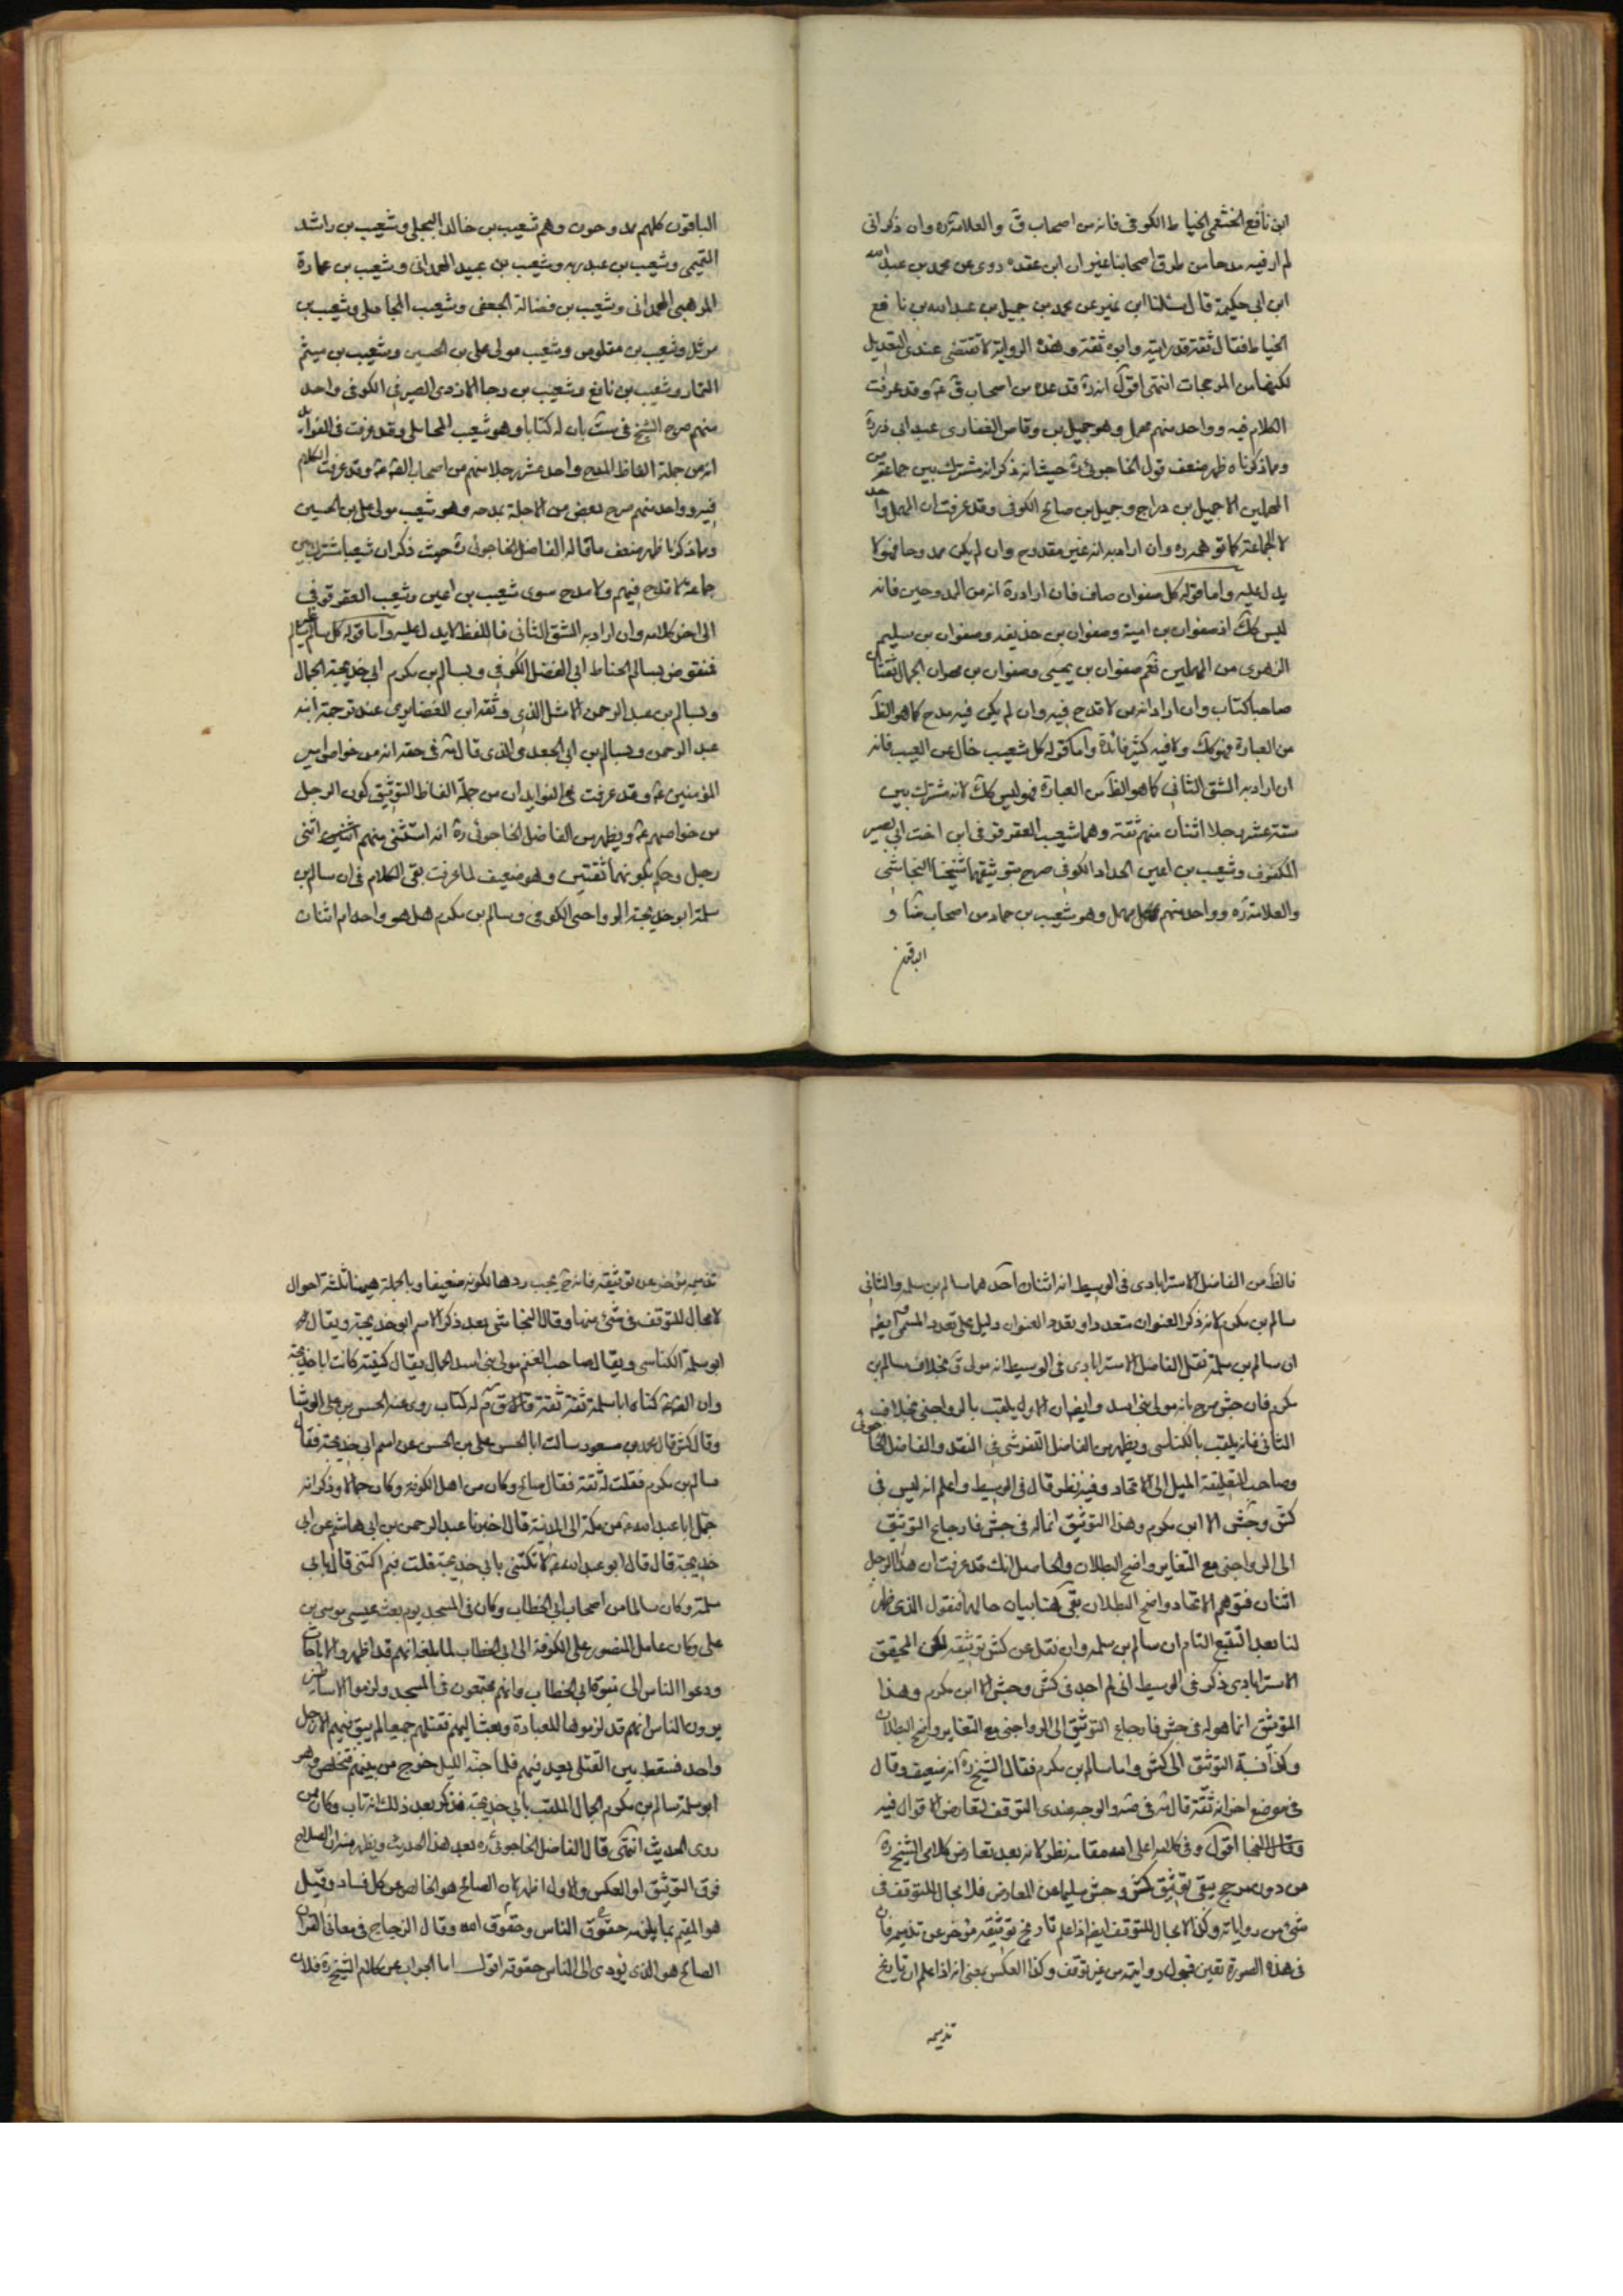 ابن نافع الخثعمى الخياط الكوفى فانه من اصحاب ق والعلامة ره وان ذكر انى
لم ار فيه مدحا من طرق اصحابنا غير ان ابن عقده روى عن محمد بن عبد الله
ابن ابى حكيمة قال سئلنا ابن نمير عن محمد بن جميل بن عبد الله بن نافع
الخياط فقال ثقة قد رايته وابوه ثقة وهذه الرواية لا تقتضى عندى التعديل
لكنها من المرجحات انتهى اقول انه ره قد عده من اصحاب ق ع وقد عرفت
الكلام فيه وواحد منهم مهمل وهو جميل بن وقاص الغفارى عبد ابى ذر ره
ومما ذكرناه ظهر ضعف قول الخاجوئى ره حيث انه ذكر انه مشترك بين جماعة من
المهملين الا جميل بن دراج وجميل بن صالح الكوفى وقد عرفت ان المهمل واحد
لا الجماعة كما توهمه ره وان اراد به انه غير مقدوح وان لم يكن ممدوحا فهو لا
يدل عليه واما قوله كل صفوان صاف فان اراد ره انه من الممدوحين فانه
ليس كك اذ صفوان بن امية وصفوان بن حذيفه وصفوان بن سليم
الزهرى من المهملين نعم صفوان بن يحيى وصفوان بن مهران الجمال ثقتان
صاحبا كتاب وان اراد انه من لا قدح فيه وان لم يكن فيه مدح كما هو الظ
من العبارة فهو كك ولا فيه كثير فائدة واما كقوله كل شعيب خال عن العيب فانه
ان اراد به الشق الثانى كما هو الظ من العبارة فهو ليس كك لانه مشترك بين
ستة عشر رجلا اثنان منهم ثقة وهما شعيب العقرقوفى ابن اخت ابى بصير
المكفوف وشعيب بن اعين الحداد الكوفى صرح بتوثيقهما شيخنا النجاشى
والعلامة ره وواحد منهم مهمل وهو شعيب بن حماد من اصحاب ضا و
الباقون
الباقون كلهم ممدوحون وهم شعيب بن خالد البجلى وشعيب بن راشد
التميمى وشعيب بن عبد ربه وشعيب بن عبيد الهمدانى وشعيب بن عمارة
المرهبى الهمدانى وشعيب بن فضالة الجعفى وشعيب المحاملى وشعيب بن
مرثد وشعيب بن مقلوص وشعيب مولى على بن الحسين وشعيب بن ميثم
التمار وشعيب بن نافع وشعيب بن رجا الازدى الصيرفى الكوفى واحد
منهم صرح الشيخ فى ست بان له كتابا وهو شعيب المحاملى وقد عرفت فى الفوائد
انه من جملة الفاظ المدح واحد عشر رجلا منهم من اصحاب الائمة ع وقد عرفت الكلام
فيه وواحد منهم صرح بعض من الاجلة بمدحه وهو شعيب مولى على بن الحسين
ومما ذكرنا ظهر ضعف ما قاله الفاضل الخاجوئى ره حيث ذكر ان شعيبا مشترك بين
جماعة لا قدح فيهم ولا مدح سوى شعيب بن اعين وشعيب العقرقوفى
الى اخر كلامه وان اراد به الشق الثانى فاللفظ لا يدل عليه واما قوله كل سالم غير سالم
فمنقوض بسالم الحناط ابى الفضل الكوفى وبسالم بن مكرم ابى خديجة الجمال
وبسالم بن عبد الرحمن الاشل الذى وثقه ابن الغضايرى عند ترجمة ابنه
عبد الرحمن وبسالم بن ابى الجعد والذى قال فى حقه انه من خواص امير
المؤمنين ع وقد عرفت فى الفوايد ان من جملة الفاظ التوثيق كون الرجل
من خواصهم ع ويظهر من الفاضل الخاجوئى ره انه استثنى منهم اثنى
رجل وحكم بكونهما ثقتين وهو ضعيف لما عرفت بقى الكلام فى ان سالم بن
سلمة ابو خديجة الرواجنى الكوفى وسالم بن مكرم هل هو واحد ام اثنان
فالظ من الفاضل الاسترابادى فى الوسيط انه اثنان احدهما سالم بن سلمه والثانى
سالم بن مكرم لانه ذكر العنوان متعددا وتعدد العنوان دليل على تعدد المسمى ايضا
ان سالم بن سلمة نقل الفاضل الاسترابادى فى الوسيط انه مولى ق بخلاف سالم بن
مكرم فان جش صرح بانه مولى بنى اسد وايضا ان الاول يلقب بالرواجنى بخلاف
الثانى فانه يلقب بالكناسى ويظهر من الفاضل التفرشى فى النقد والفاضل الخاجوئى
وصاحب التعليقة الميل الى الاتحاد وفيه نظر قال فى الوسيط واعلم انه ليس فى
كش وجش الا ابن مكرم وهذا التوثيق انما له فى جش فارجاع التوثيق
الى الرواجنى مع التغاير واضح البطلان والحاصل انك قد عرفت ان هذا الرجل
اثنان فتوهم الاتحاد واضح البطلان بقى هنا بيان حاله فنقول الذى ظهر
لنا بعد التتبع التام ان سالم بن سلمه وان نقل عن كش توثيقه لكن المحقق
الاسترابادى ذكر فى الوسيط انى لم اجد فى كش وجش الا ابن مكرم وهذا
التوثيق انما هو له فى جش فارجاع التوثيق الى الرواجنى مع التغاير واضح البطلان
وكذا نسبة التوثيق الى كش واما سالم بن مكرم فقال الشيخ ره انه ضعيف وقال
فى موضع اخر انه ثقة قال فى صه والوجه عندى التوقف لتعارض الاقوال فيه
اقول وفى كلامه اعلى الله مقامه نظر لانه بعد تعارض كلامى الشيخ ره
من دون مرجح يبقى توثيق كش وجش سليما عن المعارض فلا مجال للتوقف فى
شئ من رواياته وكذا لا مجال للتوقف ايضا اذا علم تاريخ توثيقه مؤخر عن تذميمه فان
فى هذه الصورة تعين قبول روايته من غير توقف وكذا العكس يعنى انه اذا علم ان تاريخ
تذميمه
تذميمه مؤخر عن توثيقه فانه ح يجب ردها لكونه ضعيفا وبالجملة هيهنا ثلثة احوال
لا مجال للتوقف فى شئ منها وقال النجاشى بعد ذكر الاسم ابو خديجة ويقال
ابو سلمة الكناسى ويقال صاحب الغنم مولى بنى اسد الجمال يقال كنيته كانت ابا خديجة
وان ابا عبد الله ع كناه ابا سلمة ثقة ثقة له كتاب روى عنه الحسن بن على الوشا
وقال كش قال محمد بن مسعود سالت ابا الحسن على بن الحسن عن اسم ابى خديجة فقال
سالم بن مكرم فقلت له ثقة فقال صالح وكان من اهل الكوفة وكان جمالا وذكر انه
حمل ابا عبد الله ع من مكة الى المدينة قال اخبرنا عبد الرحمن بن ابى هاشم عن ابى
خديجة قال قال ابو عبد الله ع لا تكتنى بابى خديجة قلت فبم اكتنى قال بابى
سلمة وكان سالما من اصحاب ابى الخطاب وكان فى المسجد يوم بعث عيسى موسى بن
على وكان عامل المنصور على الكوفة الى ابى الخطاب لما بلغه انهم قد اظهروا الاباحات
ودعوا الناس الى نبوة ابى الخطاب وانهم مجتمعون فى المسجد ولزموا الاساطين
يرون الناس انهم قد لزموها للعبادة وبعث اليهم فقتلهم جميعا لم يبق منهم الا رجل
واحد فسقط بين القتلى يعد فيهم فلما جنه الليل خرج من بينهم فتخلص وهو
ابو سلمة سالم بن مكرم الجمال الملقب بابى خديجة فذكر بعد ذلك انه تاب وكان ممن
روى الحديث انتهى قال الفاضل الخاجوئى ره بعد هذا الحديث ويظهر منه ان الصلاح
فوق التوثيق او العكس والاول اظهر لان الصالح هو الخالص عن كل فساد وقيل
هو المقيم بما يلزمه حقوق الناس وحقوق الله وقال الزجاج فى معانى القران
الصالح هو الذى يؤدى الى الناس حقوقه اقول اما الجواب عن كلام الشيخ ره فلان